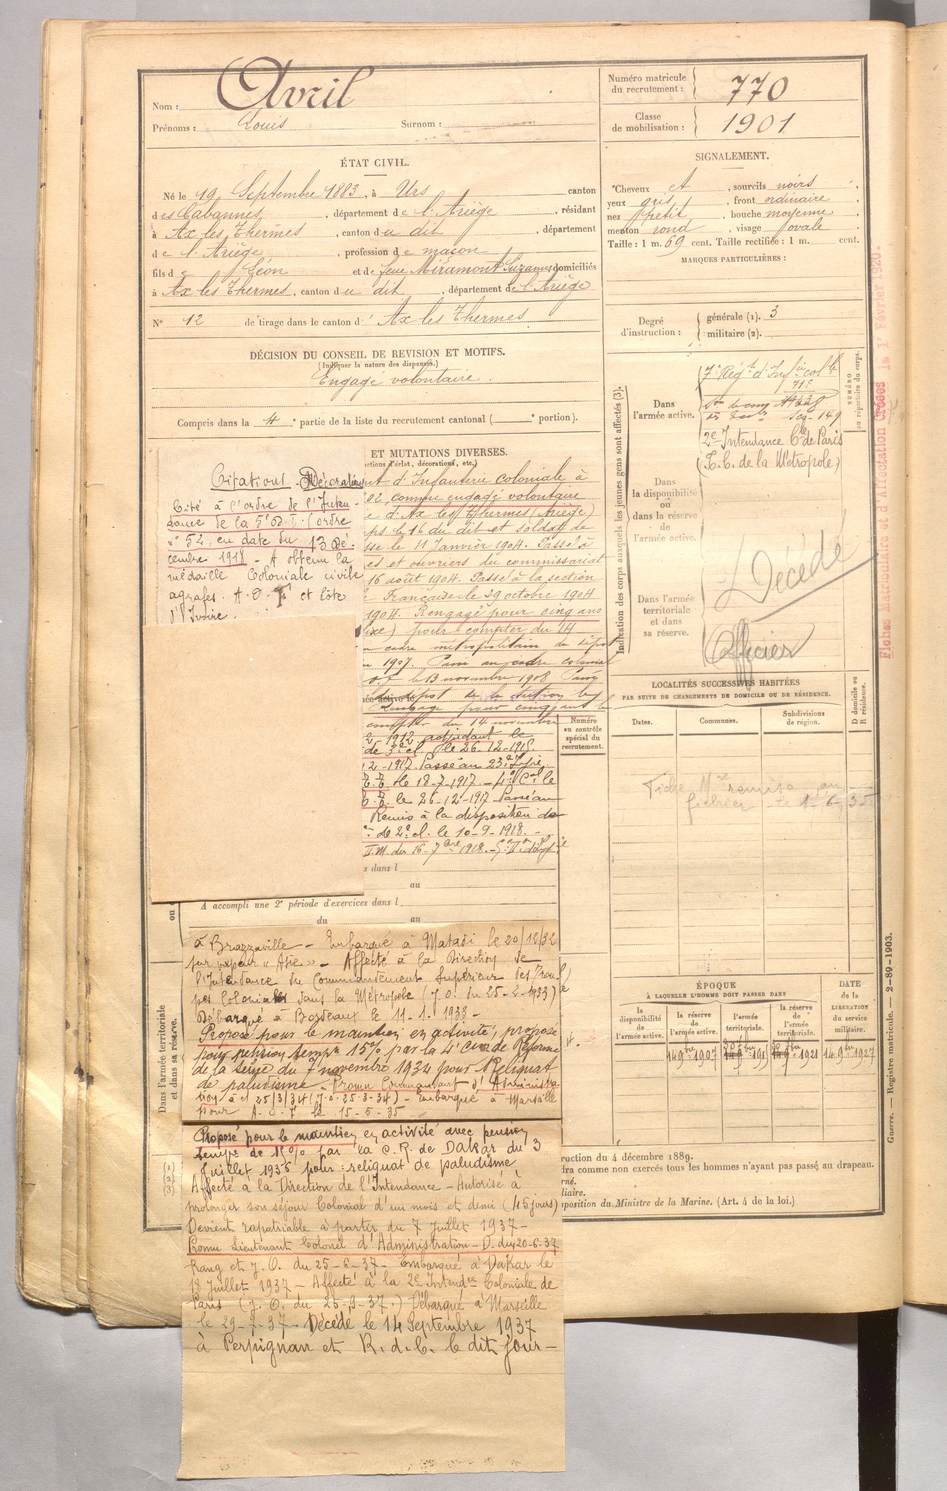 Nom : Avril
Prénoms : Louis Surnom :
Numéro matricule du recrutement : 770
Classe de mobilisation : 1901
ÉTAT CIVIL.
Né le 19 Septembre 1883, à Urs canton
des Cabannes, département de l'Ariège, résidant
à Ax les Thermes, canton du dit, département
de l'Ariège, profession de maçon
fils de Léon et de feue Miramont Suzanne domiciliés
à Ax les Thermes, canton du dit, département de l'Ariège
N° 12 de tirage dans le canton d' Ax les Thermes
SIGNALEMENT.
Cheveux et, sourcils noirs
yeux gris, front ordinaire
nez petit, bouche moyenne
menton rond, visage ovale
Taille : 1 m. 69 cent. Taille rectifiée : 1 m. cent.
MARQUES PARTICULIÈRES :
Degré d'instruction : générale (1). 3
militaire (2).
DÉCISION DU CONSEIL DE REVISION ET MOTIFS.
(Indiquer la nature des dispenses.)
Engagé volontaire.
Compris dans la 4e partie de la liste du recrutement cantonal ( e portion).
ET MUTATIONS DIVERSES.
ctions d'éclat, décorations, etc.)
Citations Décorations
Cité à l'ordre de l'Inten-
dance de la 5e D. I. (ordre
n° 52, en date du 13 Dé-
cembre 1918 - A obtenu la
médaille Coloniale civile
agrafes A.O.F et Côte
d'Ivoire.
d'Infanterie coloniale à
comme engagé volontaire
d'Ax les Thermes (Ariège)
le 16 du dit et soldat de
le 11 Janvier 1904. Passé à
es et ouvriers du commissariat
16 août 1904. Passé à la section
Française le 29 octobre 1904
1904. Rengagé pour cinq ans
pour compter du 14
cadre métropolitain
1907. au cadre colonial
le 13 novembre 1908
dépôt de la section
Rengagé pour cinq ans
compter du 14 novembre
1912 adjudant le
de 3e cl. le 26-12-1915.
12-1917. Passé au 23e
le 18-7-1917. - 4e Col le
le 26-12-1917 Passé au
Remis à la disposition de
de 2e cl. le 10-9-1918. -
T.M. du 16-7bre 1918. -
s dans l
au
A accompli une 2e période d'exercices dans l
du au
Indication des corps auxquels les jeunes gens sont affectés (3).
Dans l'armée active.
7e Régt d'Infie colle
149
2e Intendance Cle de Paris
(T.C. de la Métropole)
Dans la disponibilité ou dans la réserve de l'armée active.
Dans l'armée territoriale et dans sa réserve.
Décédé
Officier
NUMÉRO au répertoire du corps.
Fiches Matriculaire et d'Affectation créées le 1er Février 1920.
LOCALITÉS SUCCESSIVES HABITÉES
PAR SUITE DE CHANGEMENTS DE DOMICILE OU DE RÉSIDENCE.
Dates. Communes. Subdivisions de région. D domicile ou R résidence.
Numéro au contrôle spécial du recrutement.
Fiche Mle remise au
fichier le 1-6-35
ÉPOQUE
À LAQUELLE L'HOMME DOIT PASSER DANS
la disponibilité de l'armée active. la réserve de l'armée active. l'armée territoriale. la réserve de l'armée territoriale. DATE de la LIBÉRATION du service militaire.
14 9bre 1907 1921 14 9bre 1927
Dans l'armée territoriale et dans sa réserve.
à Brazzaville - Embarqué à Matadi le 20/12/32
sur vapeur "Asie" - Affecté à la Direction de
l'Intendance du Commandement Supérieur des Trou-
pes Coloniales dans la Métropole (J.O. du 25-2-1933)
Débarqué à Bordeaux le 11-1-1933 -
Proposé pour le maintien en activité, proposé
pour pension temp. 15% par la 4e Cion de Réforme
de la Seine du 7 novembre 1934 pour Reliquat
de paludisme - Promu Commandant d'Administra-
tion à ct 25/3/34 (J.O. 25-3-34) - Embarqué à Marseille
pour A.O.F le 15-5-35
Proposé pour le maintien en activité avec pension
temp. de 15% par la C.R. de Dakar du 3
Juillet 1935 pour : reliquat de paludisme
Affecté à la Direction de l'Intendance - Autorisé à
prolonger son séjour Colonial d'un mois et demi (45 jours)
Devient rapatriable à partir du 7 Juillet 1937 -
Promu Lieutenant Colonel d'Administration - D. du 20-6-37
Rang et J.O. du 25-6-37 - Embarqué à Dakar le
18 Juillet 1937 - Affecté à la 2e Intendce Coloniale de
Paris (J.O. du 25-9-37.) Débarqué à Marseille
le 29-7-37. Décédé le 14 Septembre 1937
à Perpignan et R.d.C. le dit jour -
ruction du 4 décembre 1889.
dra comme non exercés tous les hommes n'ayant pas passé au drapeau.
rné.
liaire.
sposition du Ministre de la Marine. (Art. 4 de la loi.)
Guerre. — Registre matricule. — 2-89-1903.